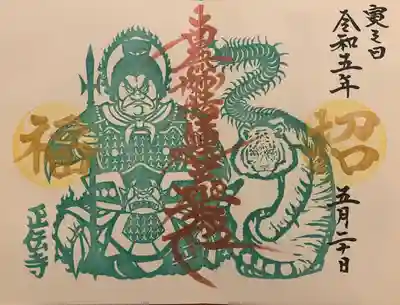 寅之日
令和五年
五月二十日
招
福
正伝寺